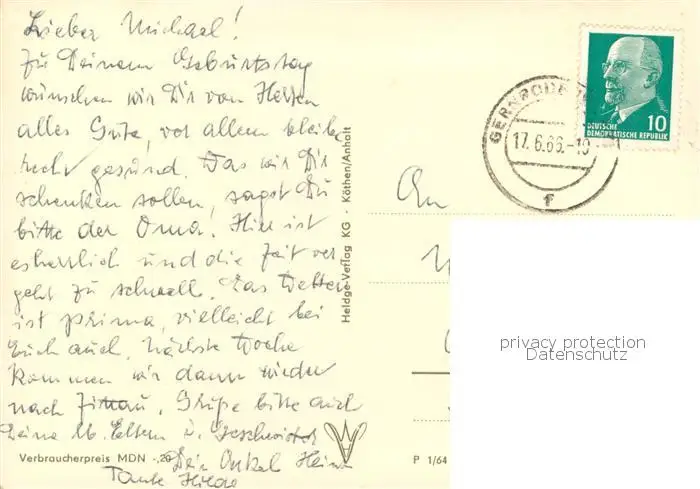 Lieber Michael!
Zu Deinem Geburtstag
wünschen wir Dir von Herzen
alles Gute, vor allem bleibe
recht gesund. Das wir Dir
schenken sollen, sagst Du
bitte der Oma. Hier ist
es herrlich und die Zeit ver
geht zu schnell. Das Wetter
ist prima, vielleicht bei
Euch auch. Nächste Woche
kommen wir dann wieder
nach Zittau. Grüße bitte auch
Deine lb. Eltern u. Geschwister
Dein Onkel Heinz
Tante Hilde
Verbraucherpreis MDN -,20
Heldge-Verlag KG · Köthen/Anhalt
P 1/64
An
GERNRODE
17.6.66.-19
f
10
DEUTSCHE
DEMOKRATISCHE REPUBLIK
privacy protection
Datenschutz